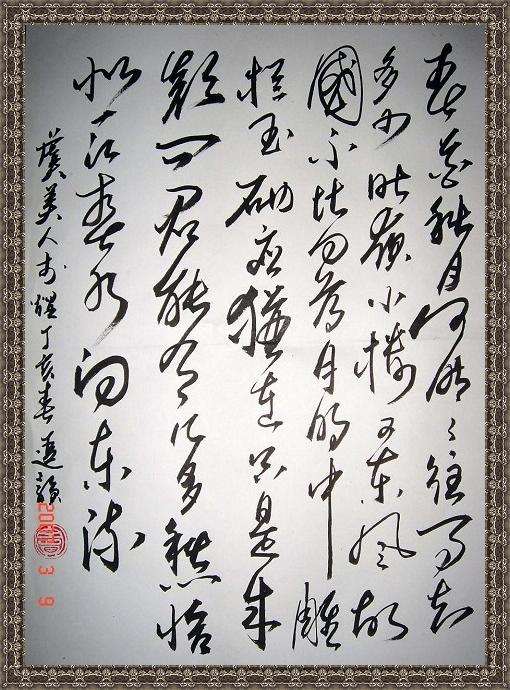 春花秋月何時了往事知
多少昨夜小樓又東風故
國不堪回首月明中雕
栏玉砌应猶在只是朱
颜问君能有几多愁恰
似一江春水向東流
虞美人 丁亥春
3 9